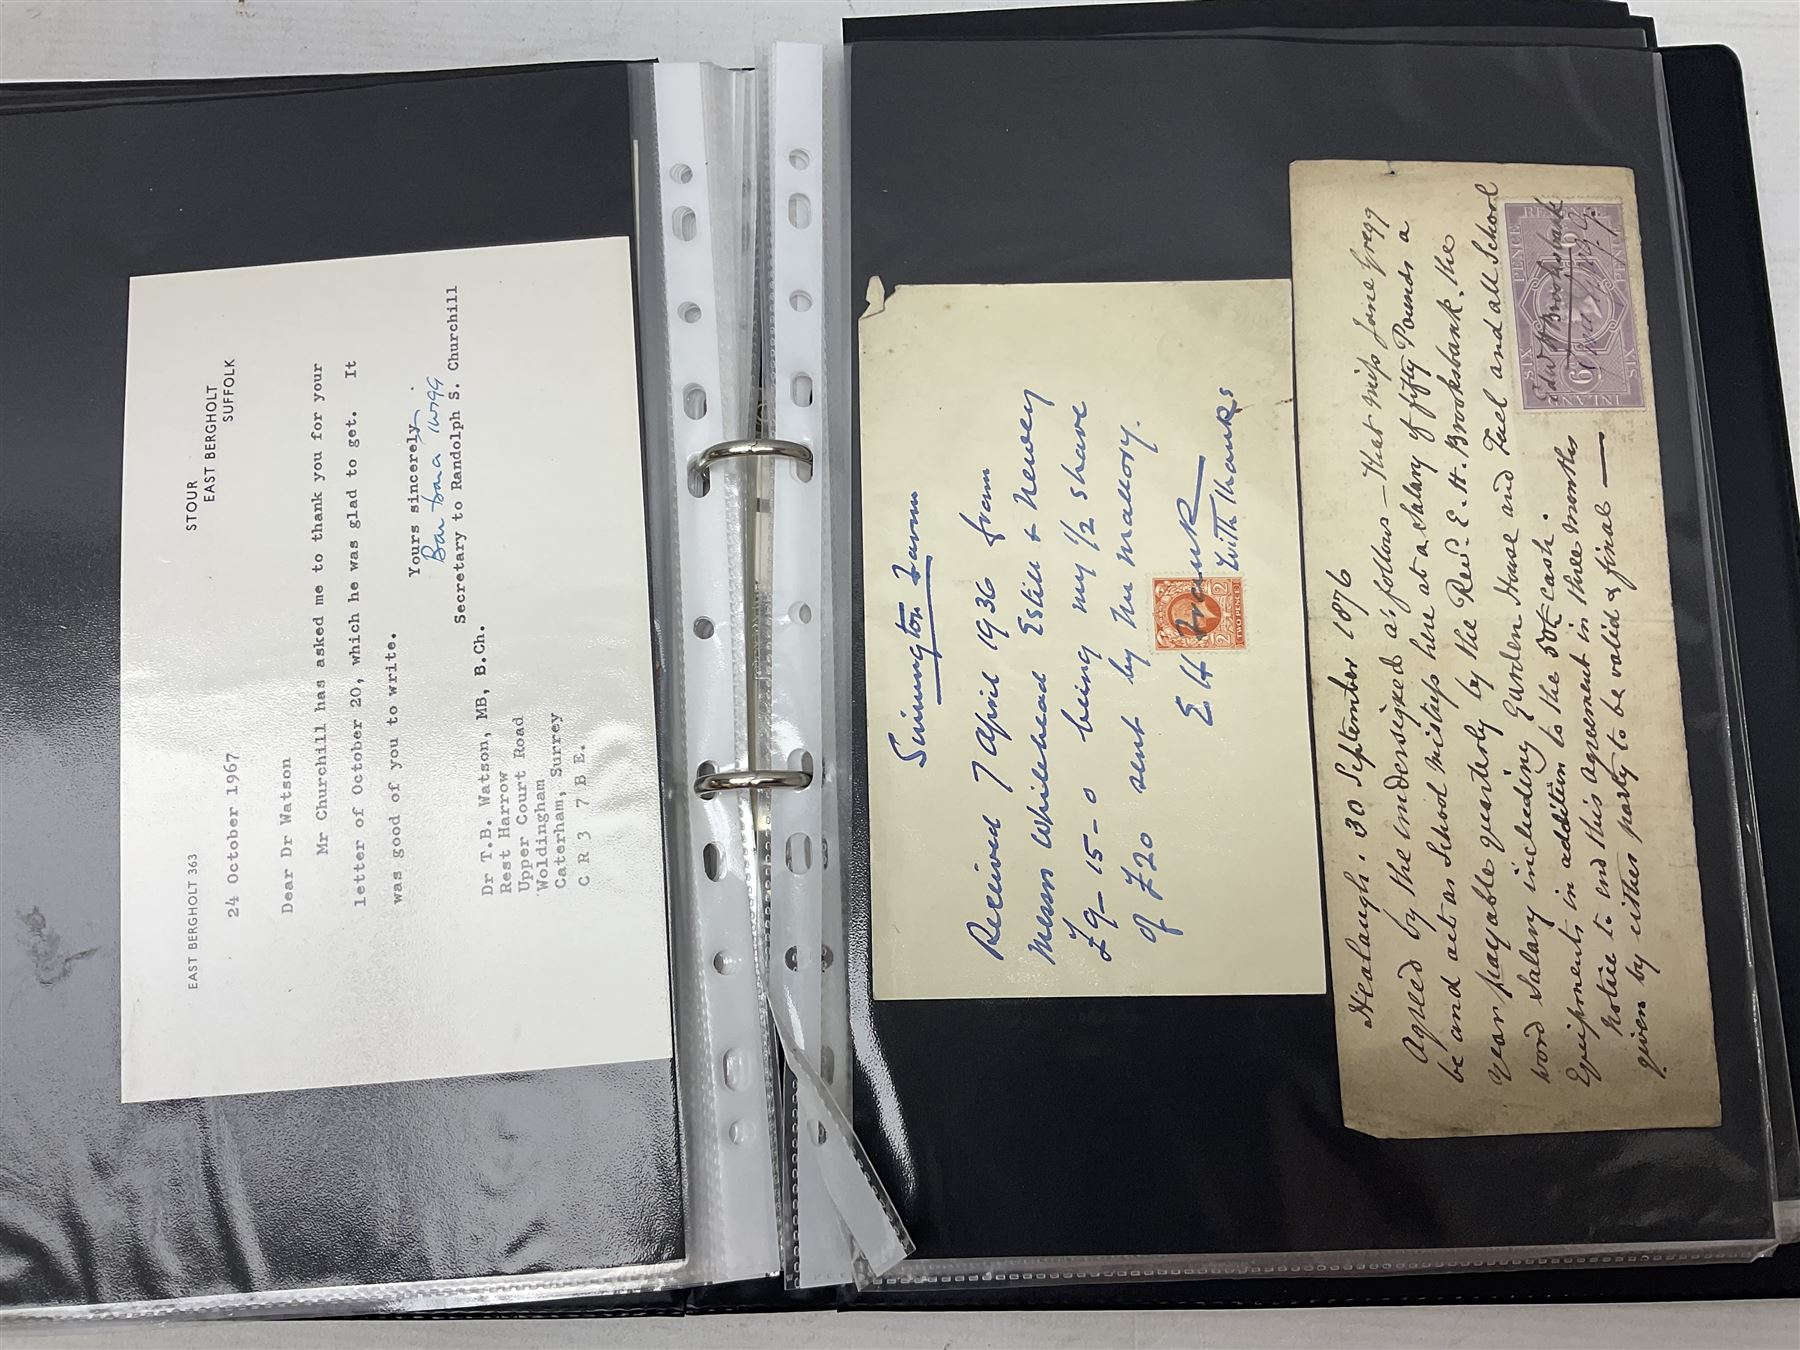 STOUR
EAST BERGHOLT
SUFFOLK
EAST BERGHOLT 363
24 October 1967
Dear Dr Watson
Mr Churchill has asked me to thank you for your
letter of October 20, which he was glad to get. It
was good of you to write.
Yours sincerely
Barbara Twigg
Secretary to Randolph S. Churchill
Dr T.B. Watson, MB, B.Ch.
Rest Harrow
Upper Court Road
Woldingham
Caterham, Surrey
C R 3 7 B E.
Sinnington Farm
Received 7 April 1936 from
Messrs Whitehead Estill & Newey
£9-15-0 being my 1/2 share
of £20 sent by Mr Mallory.
E H Frank
with thanks
TWO PENCE
Healaugh. 30 September 1876
Agreed by the undersigned as follows - That Miss Jane Gregg
be and act as School Mistress here at a Salary of fifty Pounds a
year payable quarterly by the Revd. E. H. Brooksbank, the
word Salary including Garden House and Fuel and all School
Equipments in addition to the 50£ cash.
Notice to end this agreement in three months
given by either party to be valid & final —
INLAND REVENUE
SIX PENCE
Edw H Brooksbank
Jane Gregg